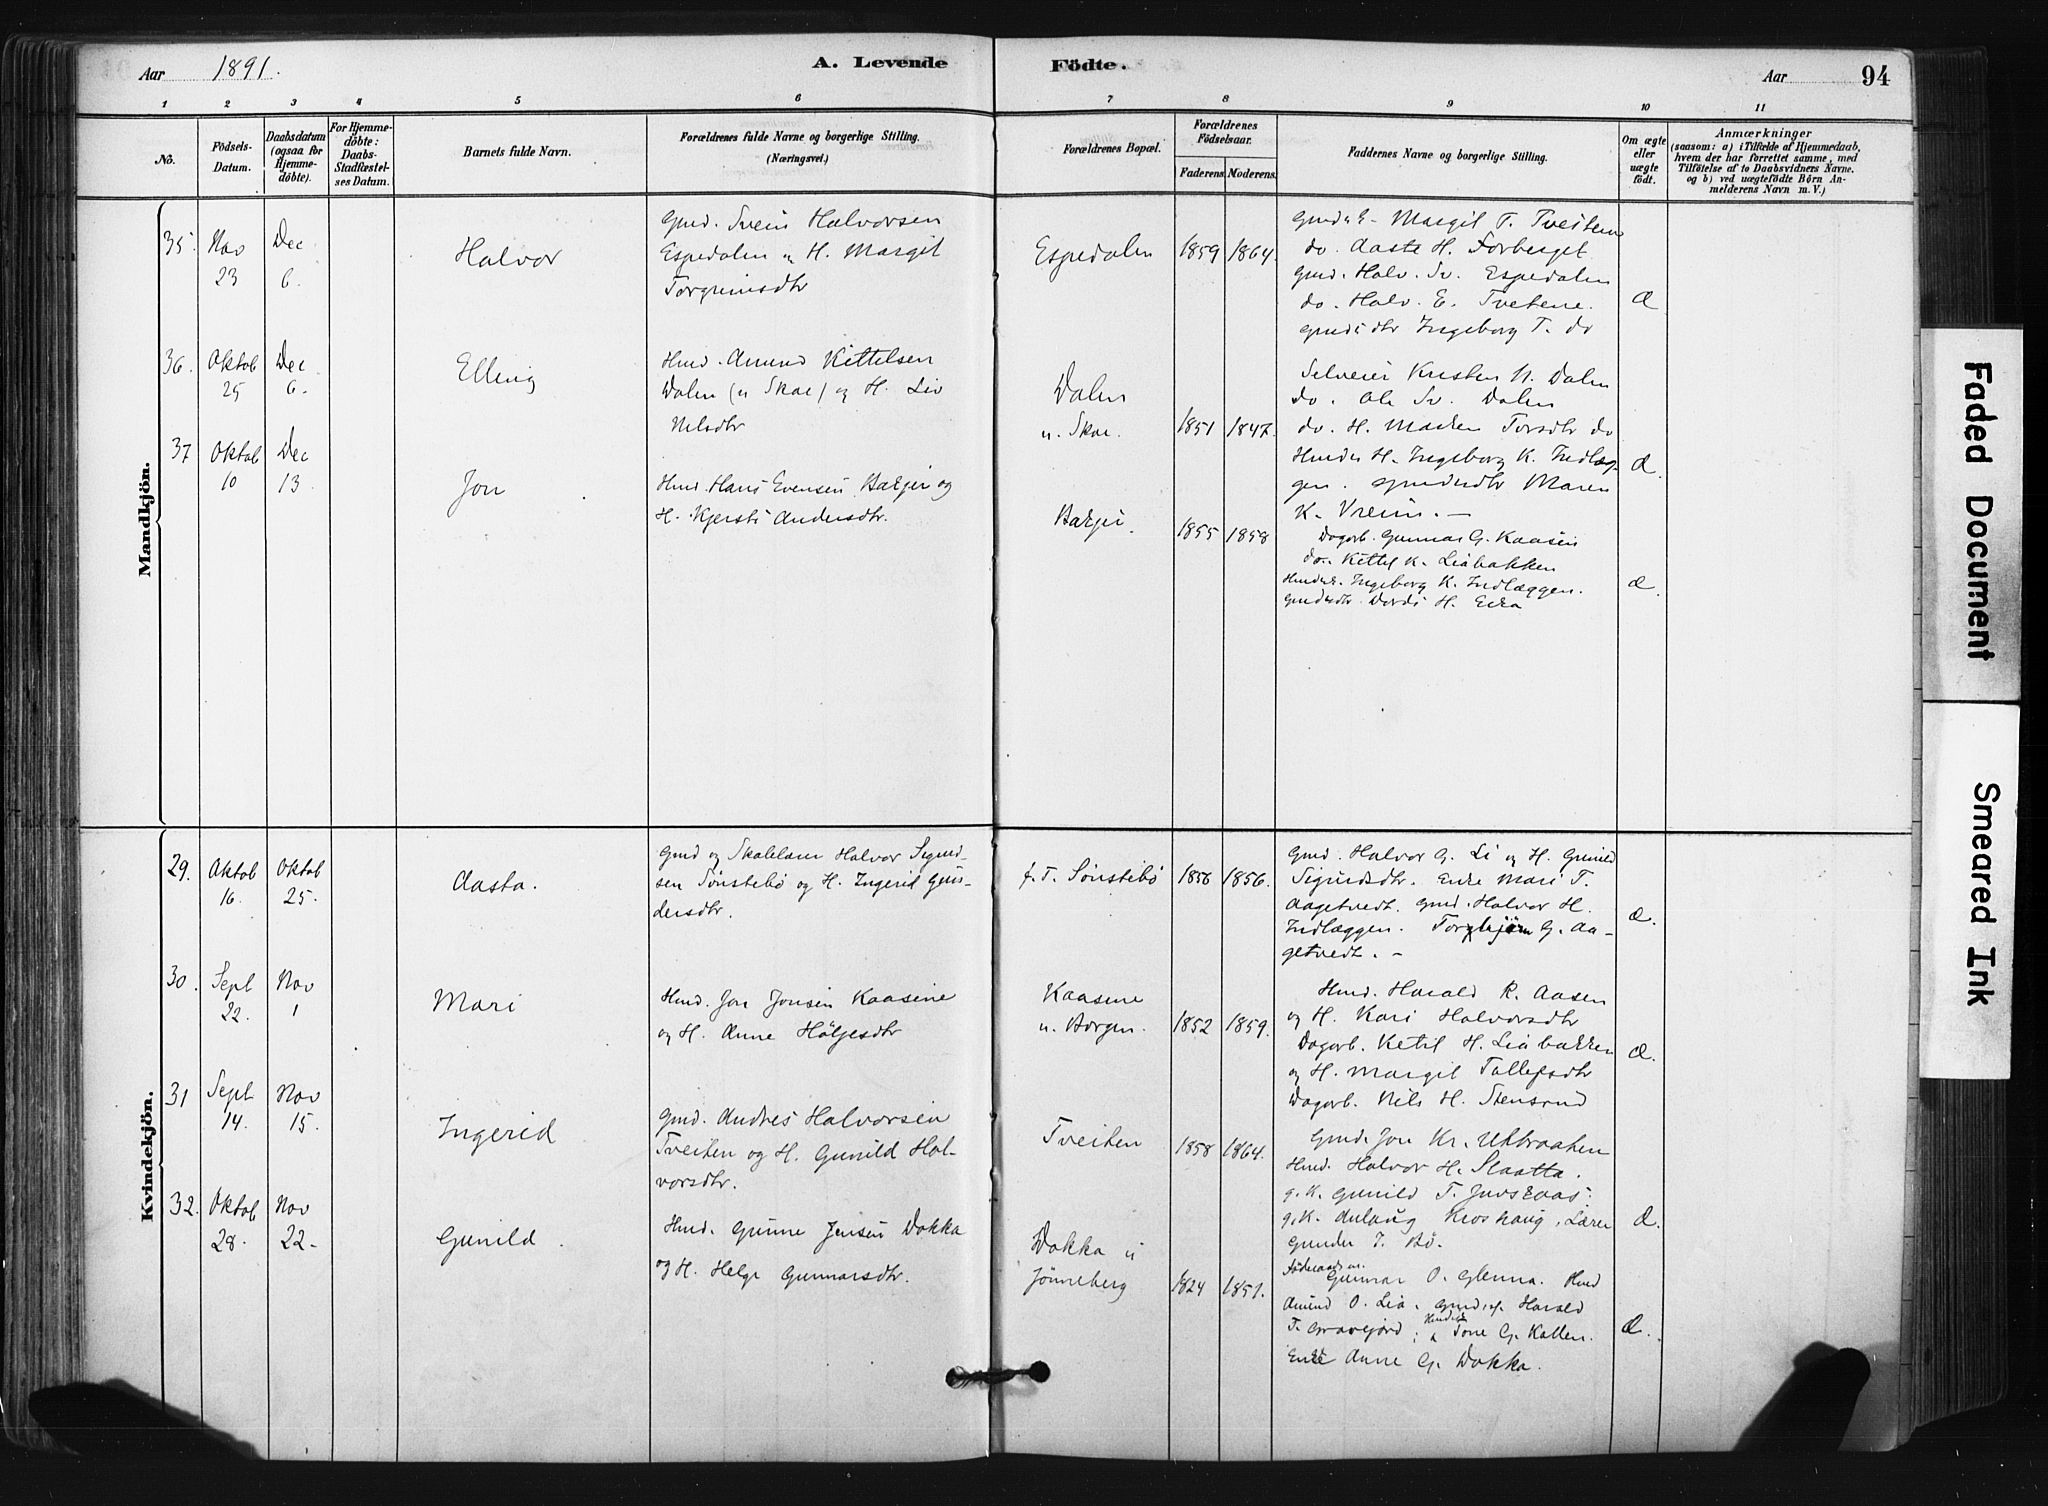 Aar 1891. A. Levende Födte. Aar 94
1 2 3 4 5 6 7 8 9 10 11
No.
Födsels-Datum.
Daabsdatum (ogsaa for Hjemme-döbte).
For Hjemme-döbte: Daabs-Stadfæstel-ses Datum.
Barnets fulde Navn.
Forældrenes fulde Navne og borgerlige Stilling.
(Næringsvei.)
Forældrenes Bopæl.
Forældrenes Födselsaar.
Faderens. Moderens.
Faddernes Navne og borgerlige Stilling.
Om ægte eller uægte födt.
Anmærkninger
(saasom: a) i Tilfælde af Hjemmedaab,
hvem der har forrettet samme, med
Tilföielse af to Daabsvidners Navne.
og b) ved uægtefödte Börn An-
melderens Navn m. V.)
Mandkjön.
35. Nov 23 Dec 6.
Halvor
Gmd. Svein Halvorsen
Espedalen og H. Margit
Torgrimsdtr
Espedalen
1859 1864.
Margit T. Tveitene
do. Aaste H. Forberget
Gmd. Halv. Sv. Espedalen
do. Halv. E. Tvetene.
Gmdsdtr Ingeborg T. do
Æ
36. Oktob 25 Dec 6.
Elling
Hmd. Amund Kittelsen
Dalen (u Skae) og H. Liv
Nilsdtr
Dalen
u. Skae.
1851 1847.
Selveier Kristen N. Dalen
do. Ole Sv. Dalen
do. H. Maren Torsdtr do
H. Ingeborg K. Indlæg-
gen. Maren
K. Vreim. —
Æ.
37 Oktob 10 Dec 13.
Jon
Hmd. Hans Evensen Bakjer og
H. Kjersti Andersdtr.
1855 1858
Dagarb. Gunnar G. Kaasen
do. Kittel K. Liabakken
Ingeborg K. Indlæggen.
H.
Æ.
Kvindekjön.
29. Oktob 16. Oktob 25.
Aasta.
Gmd og Halvor Sigurd-
sen Sönstebö og H. Ingerid Gun-
dersdtr.
Sönstebö
1856.
Gmd. Halvor G. Li og H. Gunild
Sigurdsdtr. Enke Mari T.
Aagetvedt. Gmd. Halvor H.
Indlæggen. Torbjörn G. Aa-
getvedt. -
Æ.
30. Sept 22. Nov 1
Mari
Hmd. Jon Jonsen Kaasene
og H. Anne Höljesdtr
Kaasene
u. Borgen.
1852 1859.
Hmd. Harald R. Aasen
og H. Kari Halvorsdtr
Dagarb. Ketil H. Liabakken
og H. Margit Tallefsdtr
Dagarb. Nils H. Stensrud
Æ.
31 Sept 14. Nov 15.
Ingerid
Gmd. Andres Halvorsen
Tveiten og H. Gunild Hal-
vorsdtr.
Tveiten
1858 1864.
Gmd. Jon Kr. Utbraaten
Hmd. Halvor H. Slaatta.
g.K. Gunild T. Juvskaas.
g.K. Aslaug Kroshaug, Lærer
Gunder J. Bö.
Æ.
32. Oktob 28. Nov 22.
Gunild.
Hmd. Gunne Jensen Dokka
og H. Helge Gunnarsdtr.
Dokka u
Jönneberg
1824 1851.
Gunnar O. Glenna. Hmd
Amund O. Lia. Harald
T. Tone G. Kallen.
Enke Anne G. Dokka.
Æ.
Faded Document
Smeared Ink